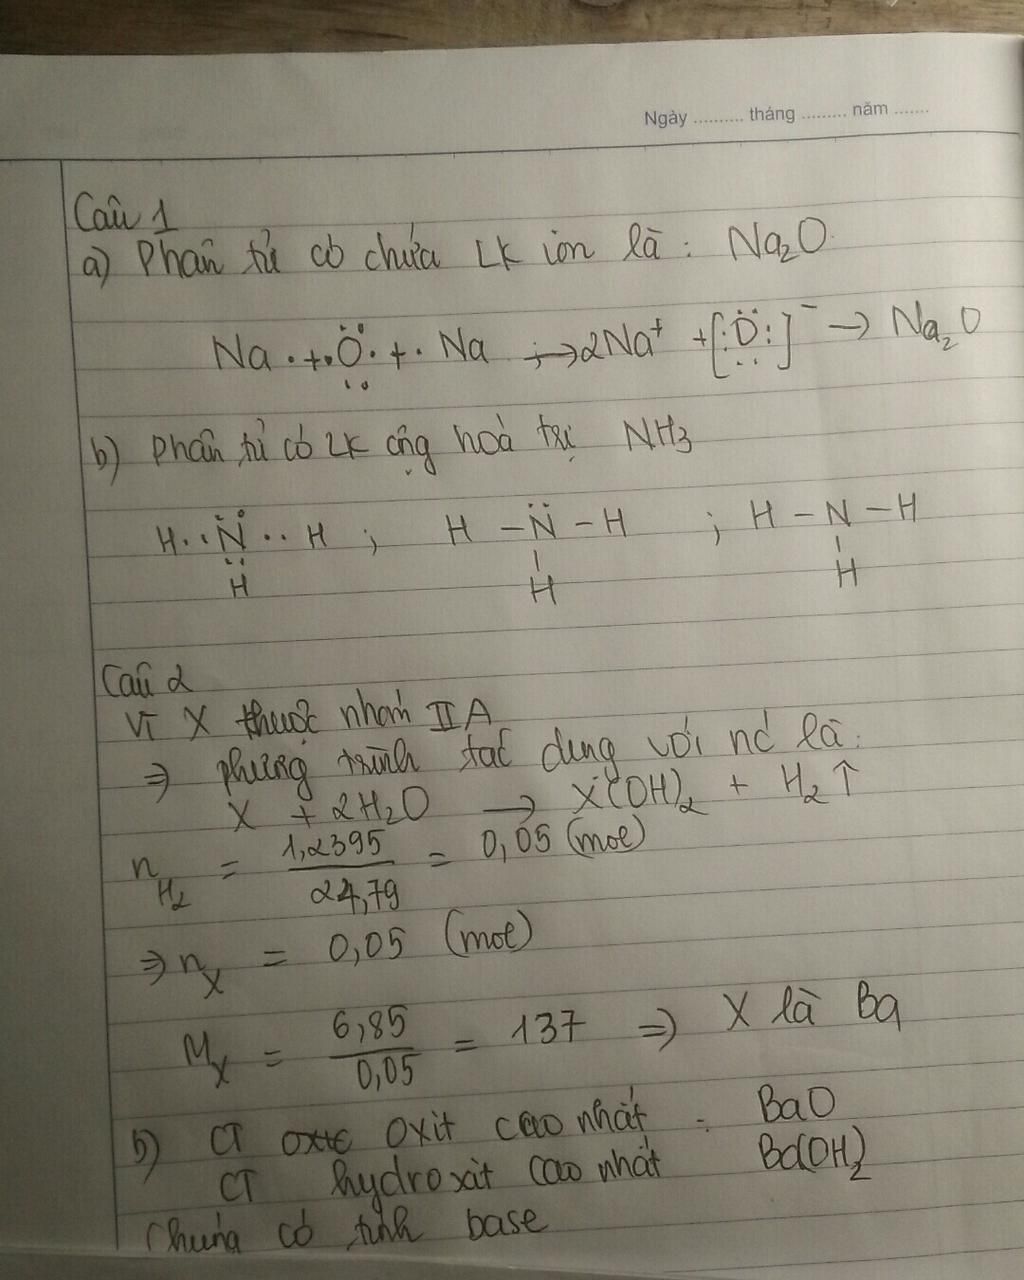 Ngày .......... tháng ......... năm .......
Câu 1
a) Phân tử có chứa LK ion là : Na₂O
Na · + ·Ö· + · Na → 2Na⁺ + [:Ö:]⁻ → Na₂O
b) Phân tử có LK cộng hoà trị NH3
H ·· N̈ ·· H ; H – N̈ – H ; H – N – H
H H H
Câu 2
Vì X thuộc nhóm IIA
⇒ phương trình tác dụng với nc là :
X + 2H₂O → X(OH)₂ + H₂ ↑
n H₂ = 1,2395 / 24,79 = 0,05 (mol)
⇒ n X = 0,05 (mol)
M X = 6,85 / 0,05 = 137 ⇒ X là Ba
b) CT oxit cao nhất : BaO
CT hydroxit cao nhất Ba(OH)₂
Chúng có tính base